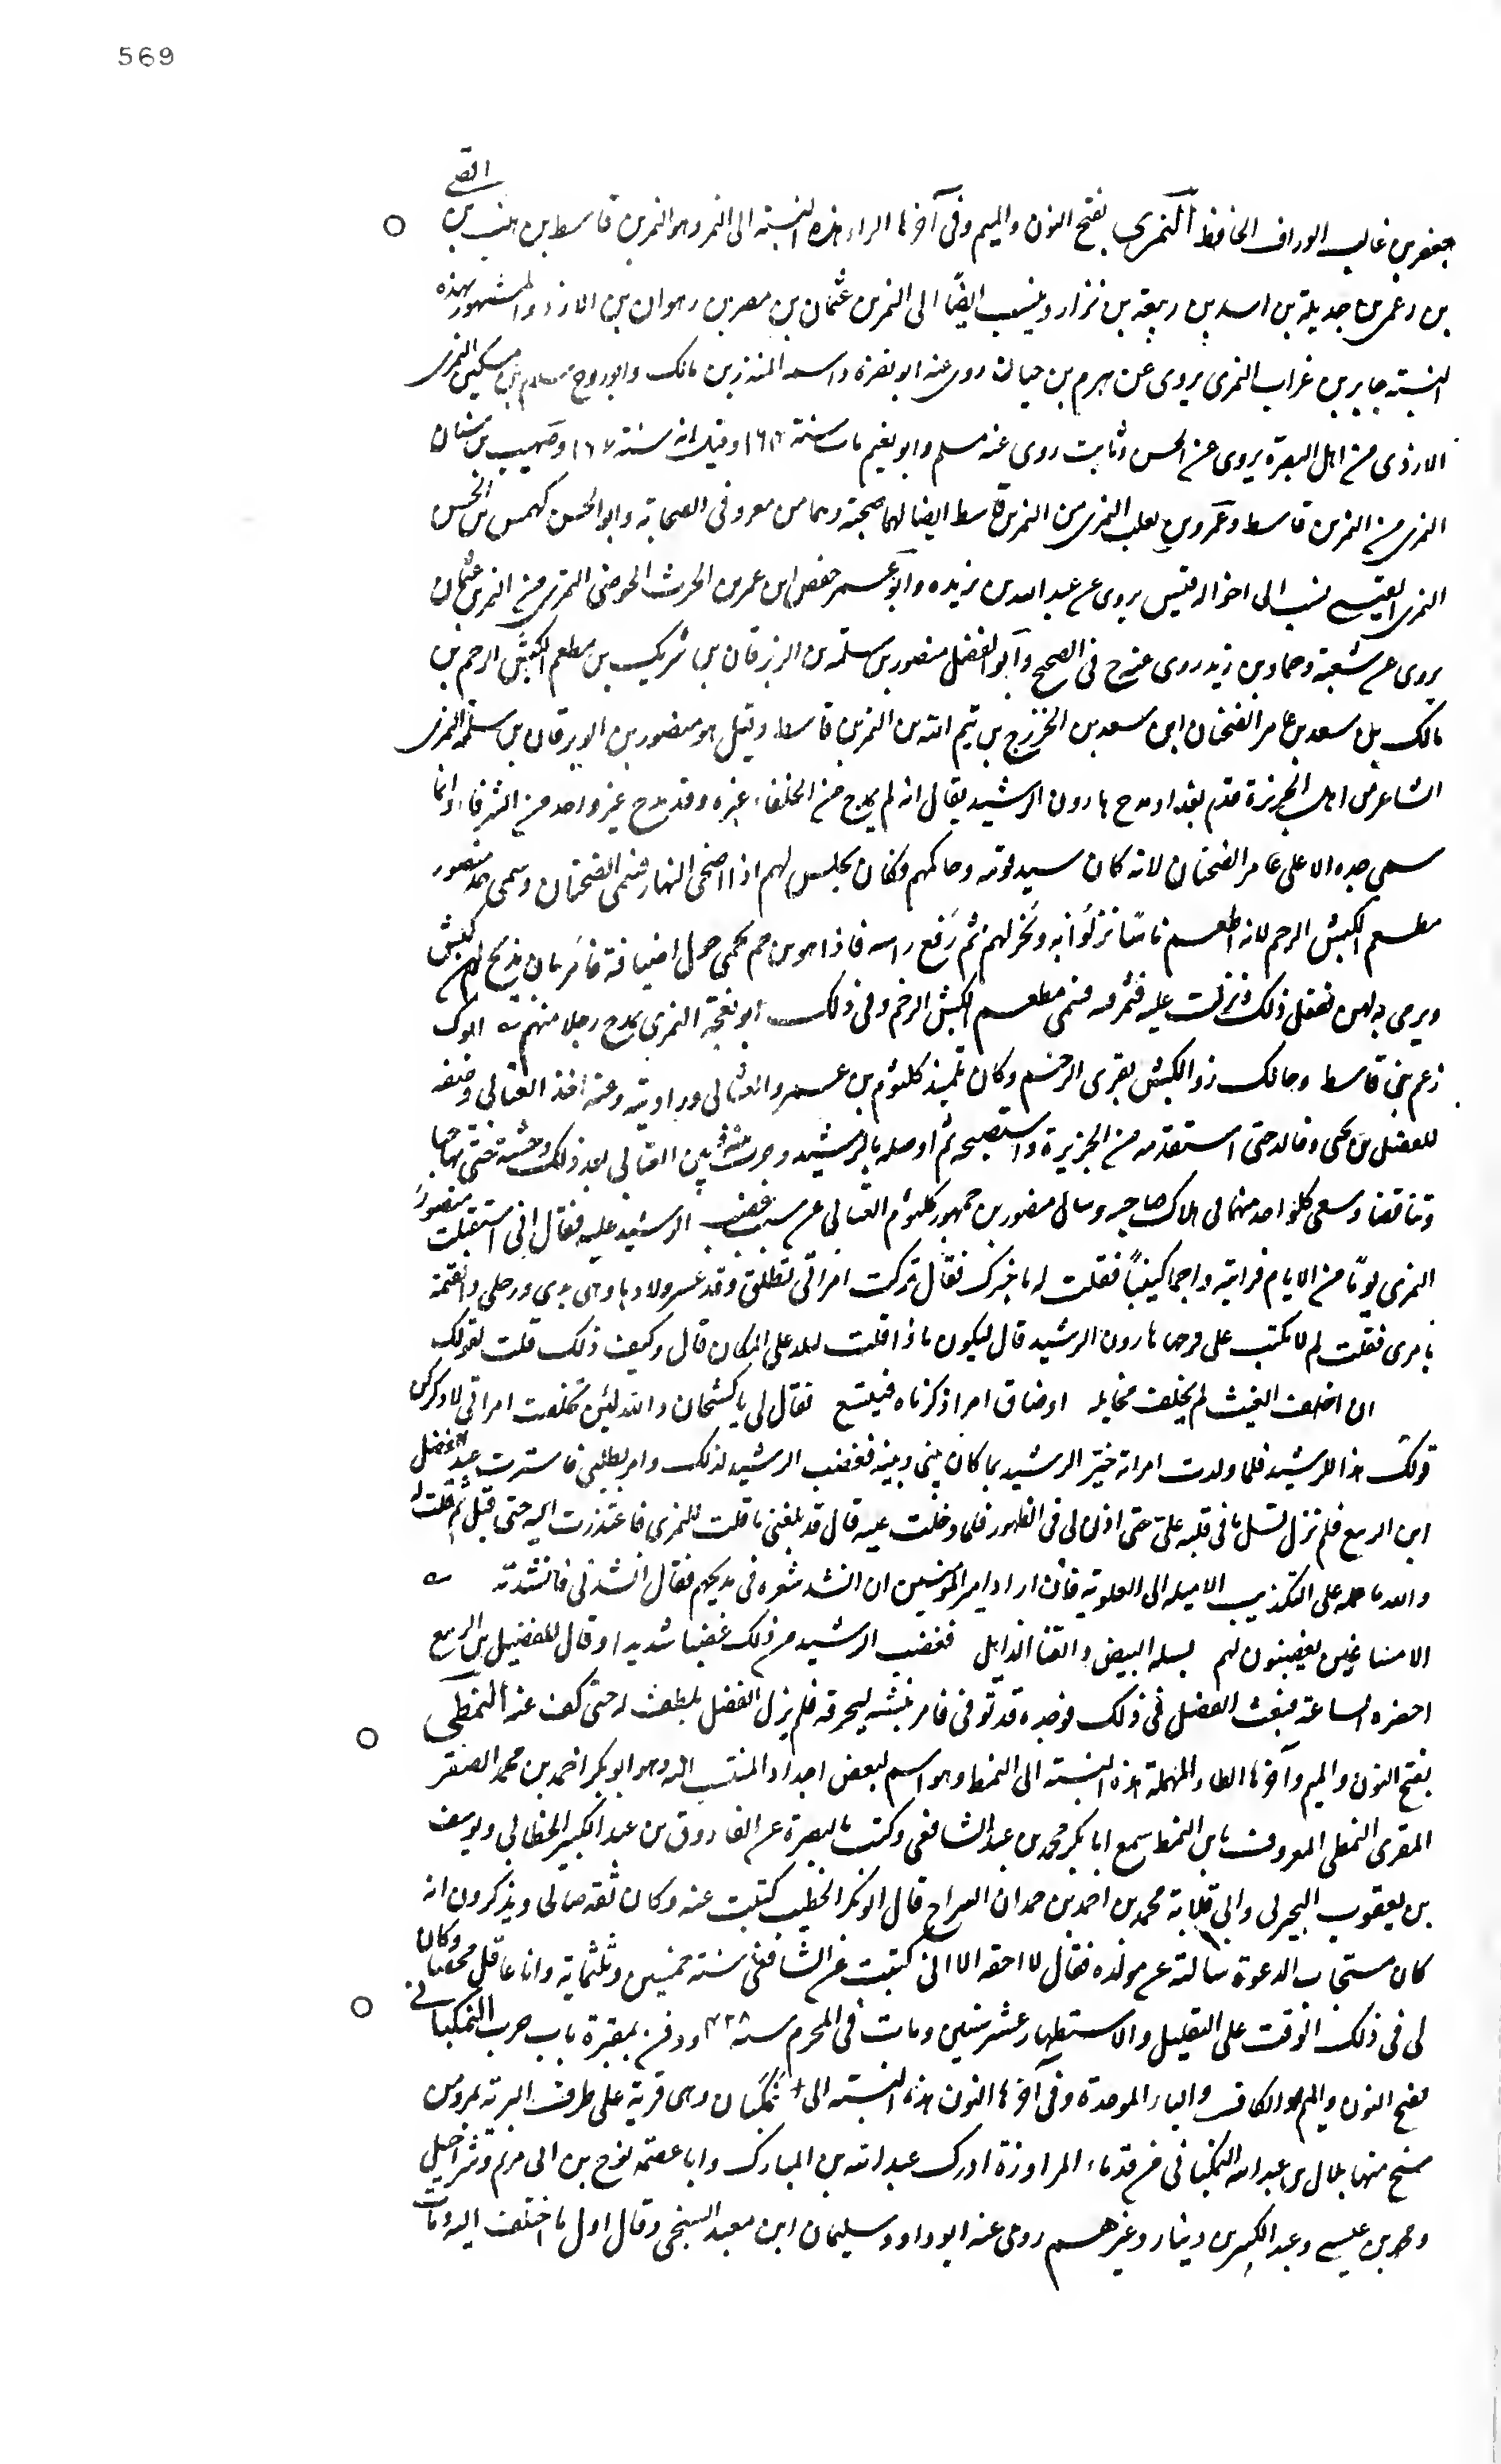 569
افصى
جعفر بن غالب الوراق الحافظ النمري بفتح النون والميم وفي آخرها الراء هذه النسبة الى النمر وهو النمر بن قاسط بن هنب بن
بن دعمي بن جديلة بن اسد بن ربيعة بن نزار وينسب ايضًا الى النمر بن عثمان بن نصر بن زهران بن الازد والمشهور بهذه
النسبة جابر بن غراب النمري يروى عن هرم بن حيان روى عنه ابو نضرة واسمه المنذر بن مالك وابو روح سلام بن مسكين النمرى
الازدى من اهل البصرة يروى عن الحسن وثابت روى عنه مسلم وابو نعيم مات سنة وقيل انه سنة ١٦٧ وصهيب بن سنان
النمرى من النمر بن قاسط وعمرو بن تغلب النمرى من النمر بن قاسط ايضا لهما صحبة وهما من معروفى الصحابة وابو الحسن كهمس بن الحسن
النمرى القيسى نسب الى اخواله قيس يروى عن عبد الله بن بريده وابو عمر حفص ابن عمر بن الحرث الحوضى النمرى من النمر بن عثمان
يروى عن شعبة وحماد بن زيد روى عنه خ فى الصحيح وابو الفضل منصور بن سلمة بن الزبرقان بن شريك بن مطعم الكبش الرخم بن
مالك بن سعد بن عامر الضحيان ابن سعد بن الخزرج بن تيم الله بن النمر بن قاسط وقيل هو منصور بن الزبرقان بن سلمة النمرى
الشاعر من اهل الجزيرة قدم بغداد ومدح هارون الرشيد يقال انه لم يمدح من الخلفاء غيره وقد مدح غير واحد من الشرفاء وانما
سمى جده الاعلى عامر الضحيان لانه كان سيد قومه وحاكمهم وكان يجلس لهم اذا اضحى النهار فسمى الضحيان وسمى جد منصور
مطعم الكبش الرخم لانه اطعم ناسًا نزلوا به ونحر لهم ثم رفع راسه فاذا هو برخم يحمن حول اضيافه فامر بان يذبح لهن كبش
ويرمى به لهن ففعل ذلك ونزلت عليه فمزقنه فسمى مطعم الكبش الرخم وفى ذلك ابو نعجة النمرى يمدح رجلا منهم ابوك
زعيم بنى قاسط وخالك ذو الكبش يقرى الرخم وكان تلميذ كلثوم بن عمرو العتابى وراويته وعنه اخذ العتابى وصفه
للفضل بن يحى وخالد حتى استقدمه من الجزيرة واستصحبه ثم اوصله بالرشيد وجرت بينه وبين العتابى بعد ذلك وحشة حتى تهاجيا
وتناقضا وسعى كل واحد منهما فى هلاك صاحبه وسال منصور بن جمهور كلثوم العتابى عن سبب غضب الرشيد عليه فقال انى استقبلت منصور
النمرى يومًا من الايام فرايته واجما كيئبًا فقلت له ما خبرك فقال تركت امراتى تطلق وقد عسر ولادها وهى يدى ورجلى والقيمة
بامرى فقلت لم لا تكتب على فرجها هارون الرشيد قال ليكون ماذا قلت لتلد على المكان قال وكيف ذلك قلت لقولك
ان اخلف الغيث لم يخلف مخايله او ضاق امر ذكرناه فيتسع فقال لى يا كشخان والله لئن تخلصت امراتى لاذكرن
قولك هذا للرشيد فلما ولدت امراته خبر الرشيد بما كان بينى وبينه فغضب الرشيد لذلك وامر بطلبى فاستترت عند الفضل
ابن الربيع فلم يزل يسل ما فى قلبه على حتى اذن لى فى الظهور فلما دخلت عليه قال قد بلغنى ما قلت للنمرى فاعتذرت اليه حتى قبل ثم قلت له
والله ما حمله على التكذيب الا ميله الى العلوية فان اراد امير المومنين ان انشده شعره فى مديحهم فقال انشدنى فانشدته
الا مساعير يغضبون لهم بسلة البيض والقنا الذابل فغضب الرشيد من ذلك غضبا شديدا وقال للفضل بن الربيع
احضره الساعة فبعث الفضل فى ذلك فوجده قد توفى فامر بنبشه ليحرقه فلم يزل الفضل يلطف له حتى كف عنه النمطى
بفتح النون والميم وآخرها الطاء المهملة هذه النسبة الى النمط وهو اسم لبعض اجداد المنتسب اليه وهو ابو بكر احمد بن محمد الصقر
المقرى النمطى المعروف بابن النمط سمع ابا بكر محمد بن عبد الله الشافعى وكتب بالبصرة عن الفاروق بن عبد الكبير الخطابى ويوسف
بن يعقوب النجيرمى وابى قلابة محمد بن احمد بن حمدان السراج قال ابو بكر الخطيب كتبت عنه وكان ثقة صالحا ويذكرون انه
كان مستجاب الدعوة سالته عن مولده فقال لا احقه الا انى كتبت عن الشافعى سنة خمسين وثلثماية وانا عاقل محصل وكان
لى فى ذلك الوقت على التقليل والاستظهار عشر سنين ومات فى المحرم سنة ٤٢٨ ودفن بمقبرة باب حرب النمكبانى
بفتح النون والميم والكاف والباء الموحدة وفى آخرها النون هذه النسبة الى نمكبان وهى قرية على طرف البرية بمرو من
سنج منها بلال بن عبد الله النمكبانى من قدماء المراوزة ادرك عبد الله بن المبارك وابا عصمة نوح بن ابى مريم
ومحمد بن عيسى وعبد الكبير بن دينار وغيرهم روى عنه ابو داود سليمان ابن معبد السنجى وقال اول ما اختلف اليه ومات